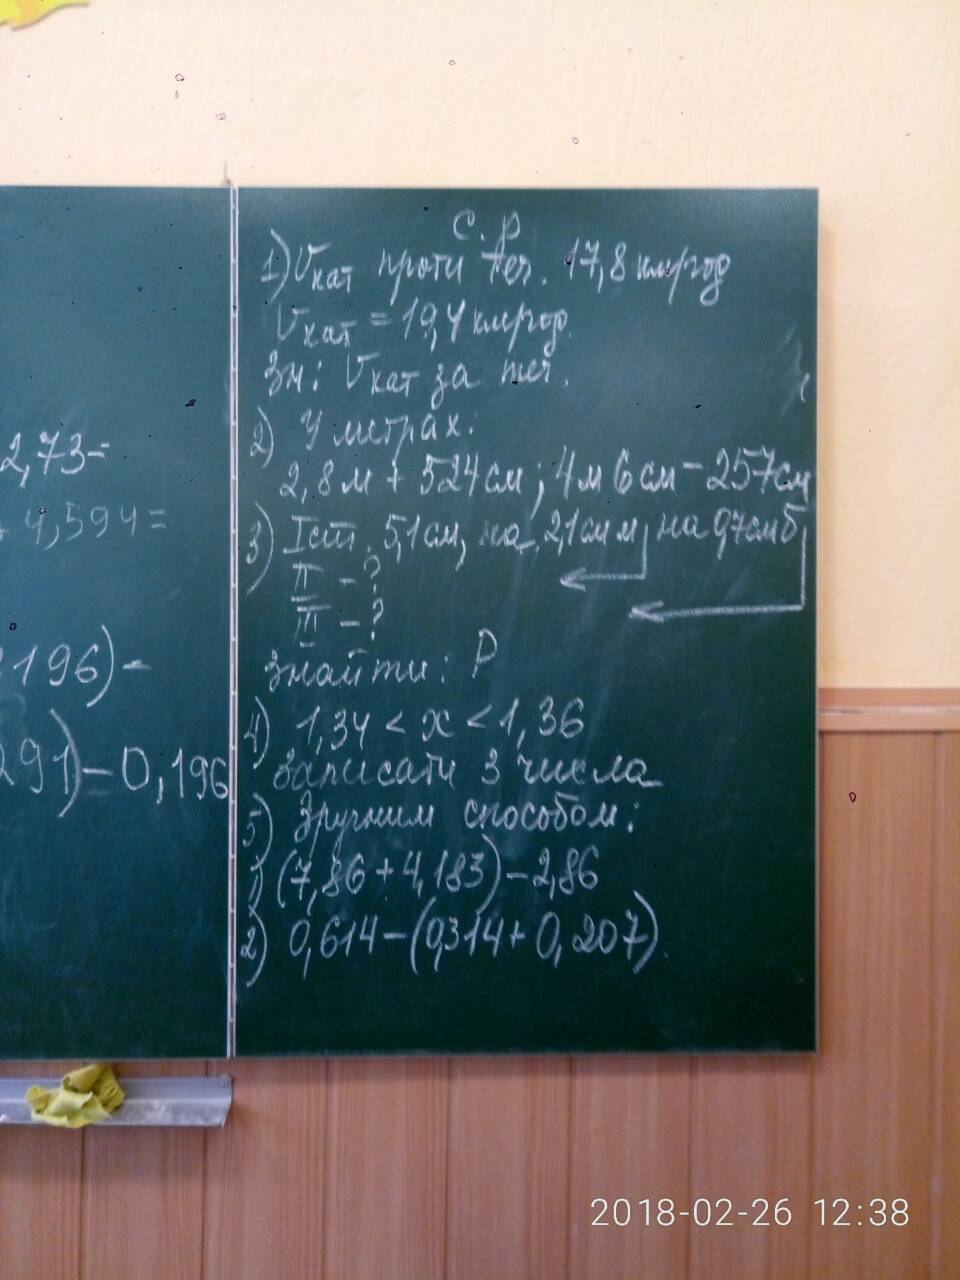 2,73-
+ 4,594=
2196)-
291)-0,196
С. Р
1) Vкат проти теч. 17,8 км/год
Vкат = 19,4 км/год.
Зн: Vкат за теч.
2) У метрах:
2,8м + 524см; 4м 6см - 257см
3) Iст. 5,1см, на 2,1см м, на 0,7см б
II - ?
III - ?
знайти: P
4) 1,34 < x < 1,36
записати 3 числа
5) Зручним способом:
1) (7,86+4,183)-2,86
2) 0,614-(0,314+0,207).
2018-02-26 12:38